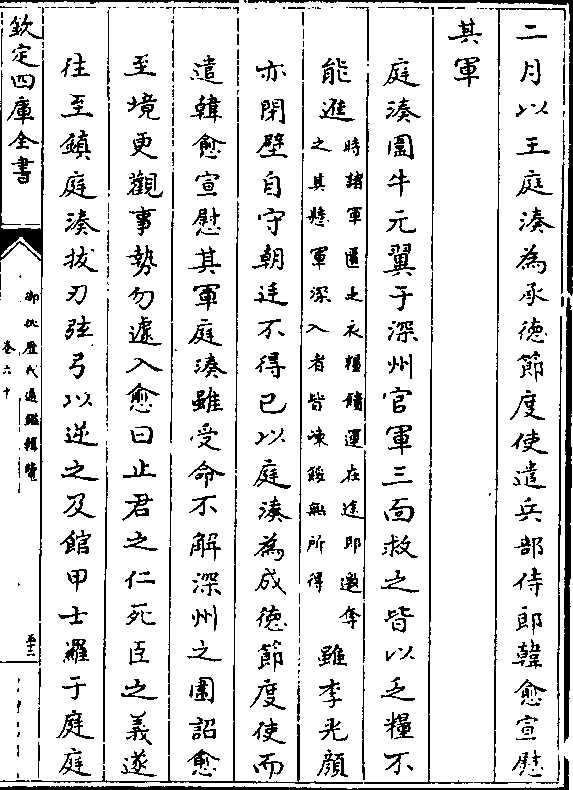 二月以王庭湊為承德節度使遣兵部侍郎韓愈宣慰
其軍
庭湊圍牛元翼于深州官軍三面救之皆以乏糧不
能進時諸軍匱乏衣糧饋運在途即邀奪之其懸軍深入者皆凍餒無所得雖李光顔
亦閉壁自守朝廷不得已以庭湊為成德節度使而
遣韓愈宣慰其軍庭湊雖受命不解深州之圍詔愈
至境更觀事勢勿遽入愈曰止君之仁死臣之義遂
往至鎮庭湊拔刃弦弓以逆之及館甲士羅于庭庭
欽定四庫全書
御批歷代通鑑輯覽
卷六十